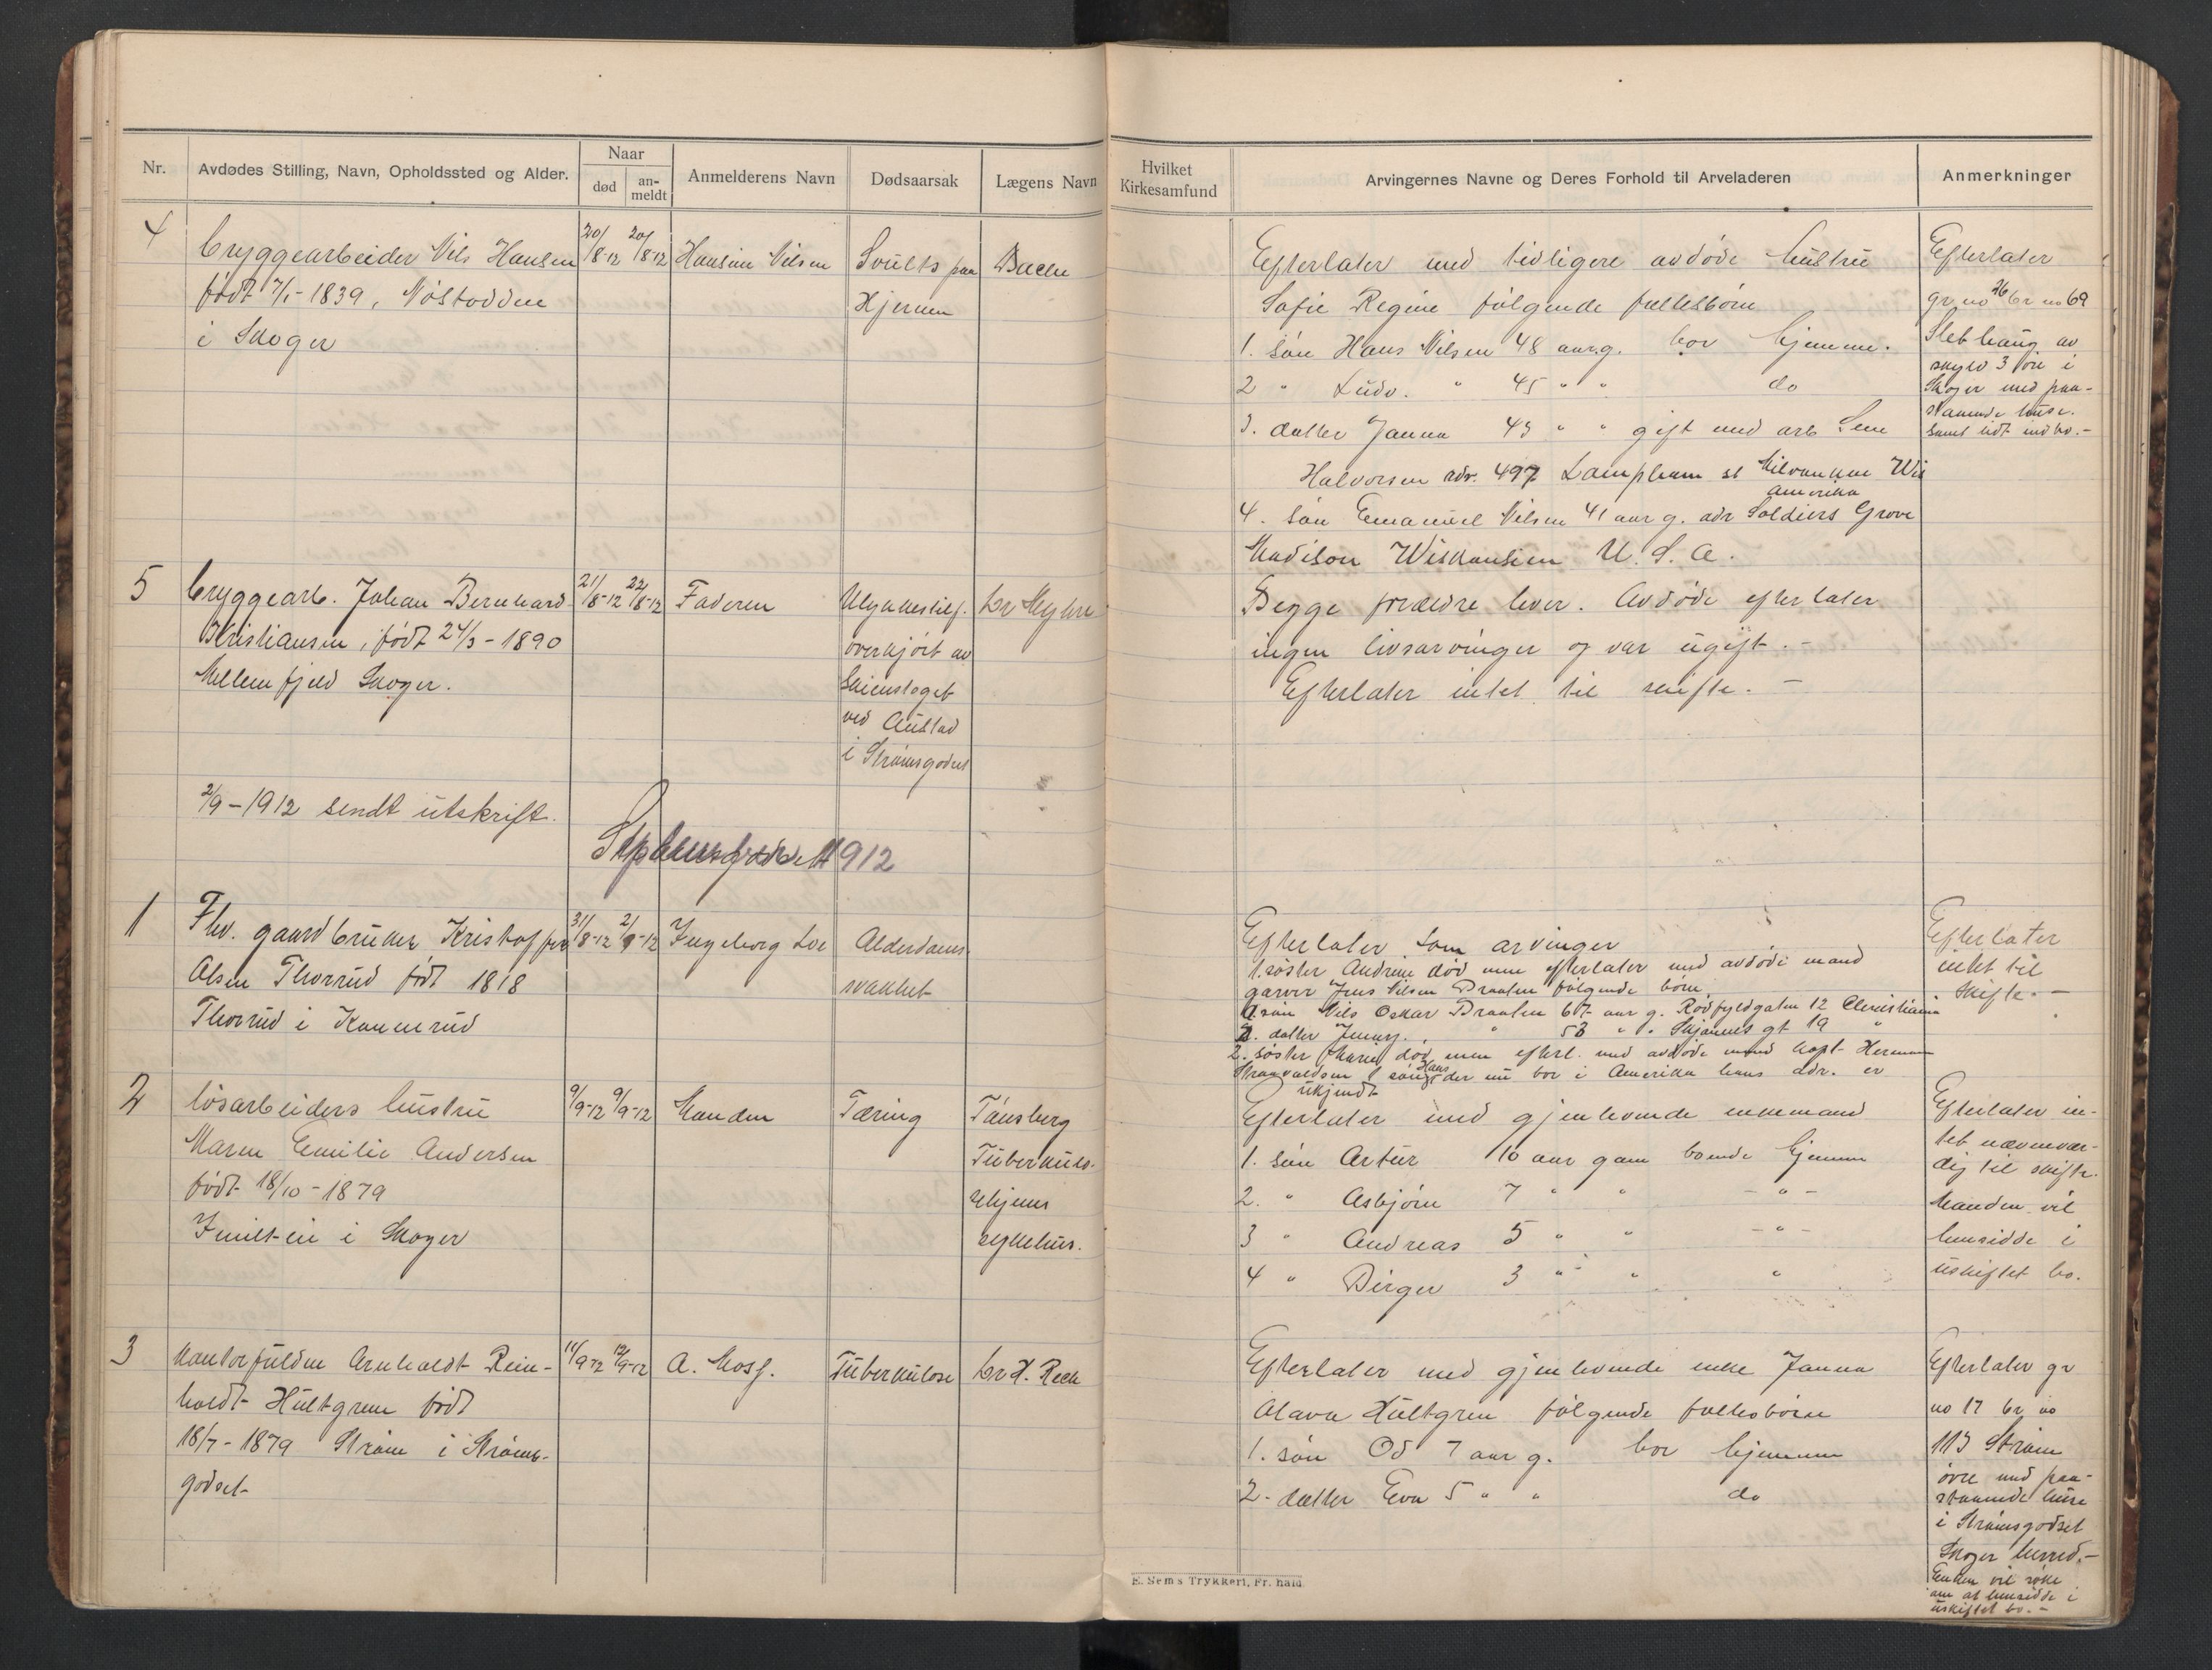 Nr.
Avdødes Stilling, Navn, Opholdssted og Alder.
Naar
død
an-
meldt
Anmelderens Navn
Dødsaarsak
Lægens Navn
Hvilket
Kirkesamfund
Arvingernes Navne og Deres Forhold til Arveladeren
Anmerkninger
4
bryggearbeider Nils Hansen
født 7/1-1839, Nøstodden
i Skoger
20/8-12
20/8-12
Hansine Nilsen
Svulst paa
Hjernen
Bache
Efterlater med tidligere avdøde hustru
Sofie Regine følgende fællesbørn
1. søn Hans Nilsen 48 aar g. bor hjemme.
2 " Ludv. " 45 " " do
3. datter Janna 43 " " gift med arb Sem
Halvorsen adr. 497 st Milvaukee Wis
Amerika
4. søn Emanuel Nilsen 41 aar g. adr Soldiers Grove
Madison Wiskonsien U. S. A.
Efterlater
gr. no 26 br no 69
Slethaug av
skyld 3 øre i
Skoger med paa-
staaende huse.
samt lidt indbo.-
5
bryggearb. Johan Bernhard
Kristiansen, født 24/3-1890
Mellemfjeld Skoger.
21/8-12
22/8-12
Faderen
Ulykkestilf.
overkjørt av
Skienstoget
ved Austad
i Strømsgodset
Dr Myhre
Begge forældre lever. Avdøde efterlater
ingen livsarvinger og var ugift.-
Efterlater intet til skifte.-
2/9-1912 sendt utskrift.
1912
1
Fhv. gaardbruker Kristoffer
Olsen Thorrud født 1818
Thorrud i Konnerud
31/8-12
2/9-12
Ingeborg Loe
Alderdoms-
svakhet
Efterlater som arvinger
1. søster Andrine død men efterlater med avdøde mand
garver Jens Nilsen Braaten følgende børn
1. søn Nils Oskar Braaten 67 aar g. Rødfyldgaten 12 Christiania
2. datter Jenny " 58 " " gt 19 "
2. søster Maria død men efterl. med avdøde mand kapt. Herman
1 søn Hans der nu bor i Amerika hans adr. er
ukjendt
Efterlater
intet til
skifte.-
2
løsarbeiders hustru
Maren Emilie Andersen
født 18/10-1879
i Skoger
9/9-12
9/9-12
Manden
Tæring
Tønsberg
Tuberkulo-
sehjems
sykehus.
Efterlater med gjenlevende enkemand
1. søn Artur 10 aar gam boende hjemme
2. " Asbjørn 7 " " - " -
3 " Andreas 5 " " - " -
4 " Birger 3 " " "
Efterlater in-
tet nævnevær-
dig til skifte.
Manden vil
hensidde i
uskiftet bo.
3
Kontorfuldm Arnholdt Rein-
holdt Hultgren født
18/7-1879 Strøm i Strøms-
godset
11/9-12
12/9-12
A. Moss.
Tuberkulose
Dr H. Reck
Efterlater med gjenlevende enke Janna
Olava Hultgren følgende fællesbørn
1. søn Od 7 aar g. bor hjemme
2. datter Eva 5 " " do
Efterlater gr
no 17 br no
113 Strøm
øvre med paa-
staaende huse
i Strømsgodset
Skoger herred.-
Enken vil søke
om at hensidde i
uskiftet bo.-
E. Sem's Trykkeri, Fr. hald